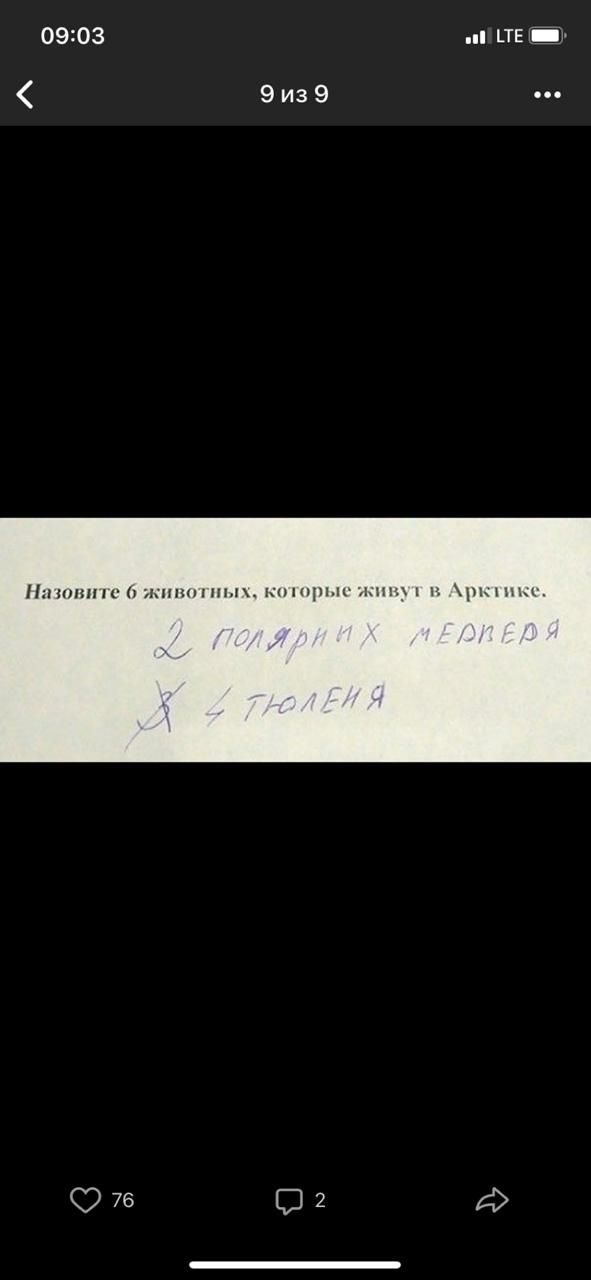 09:03
LTE
9 из 9
Назовите 6 животных, которые живут в Арктике.
2 полярных медведя
4 тюленя
76
2